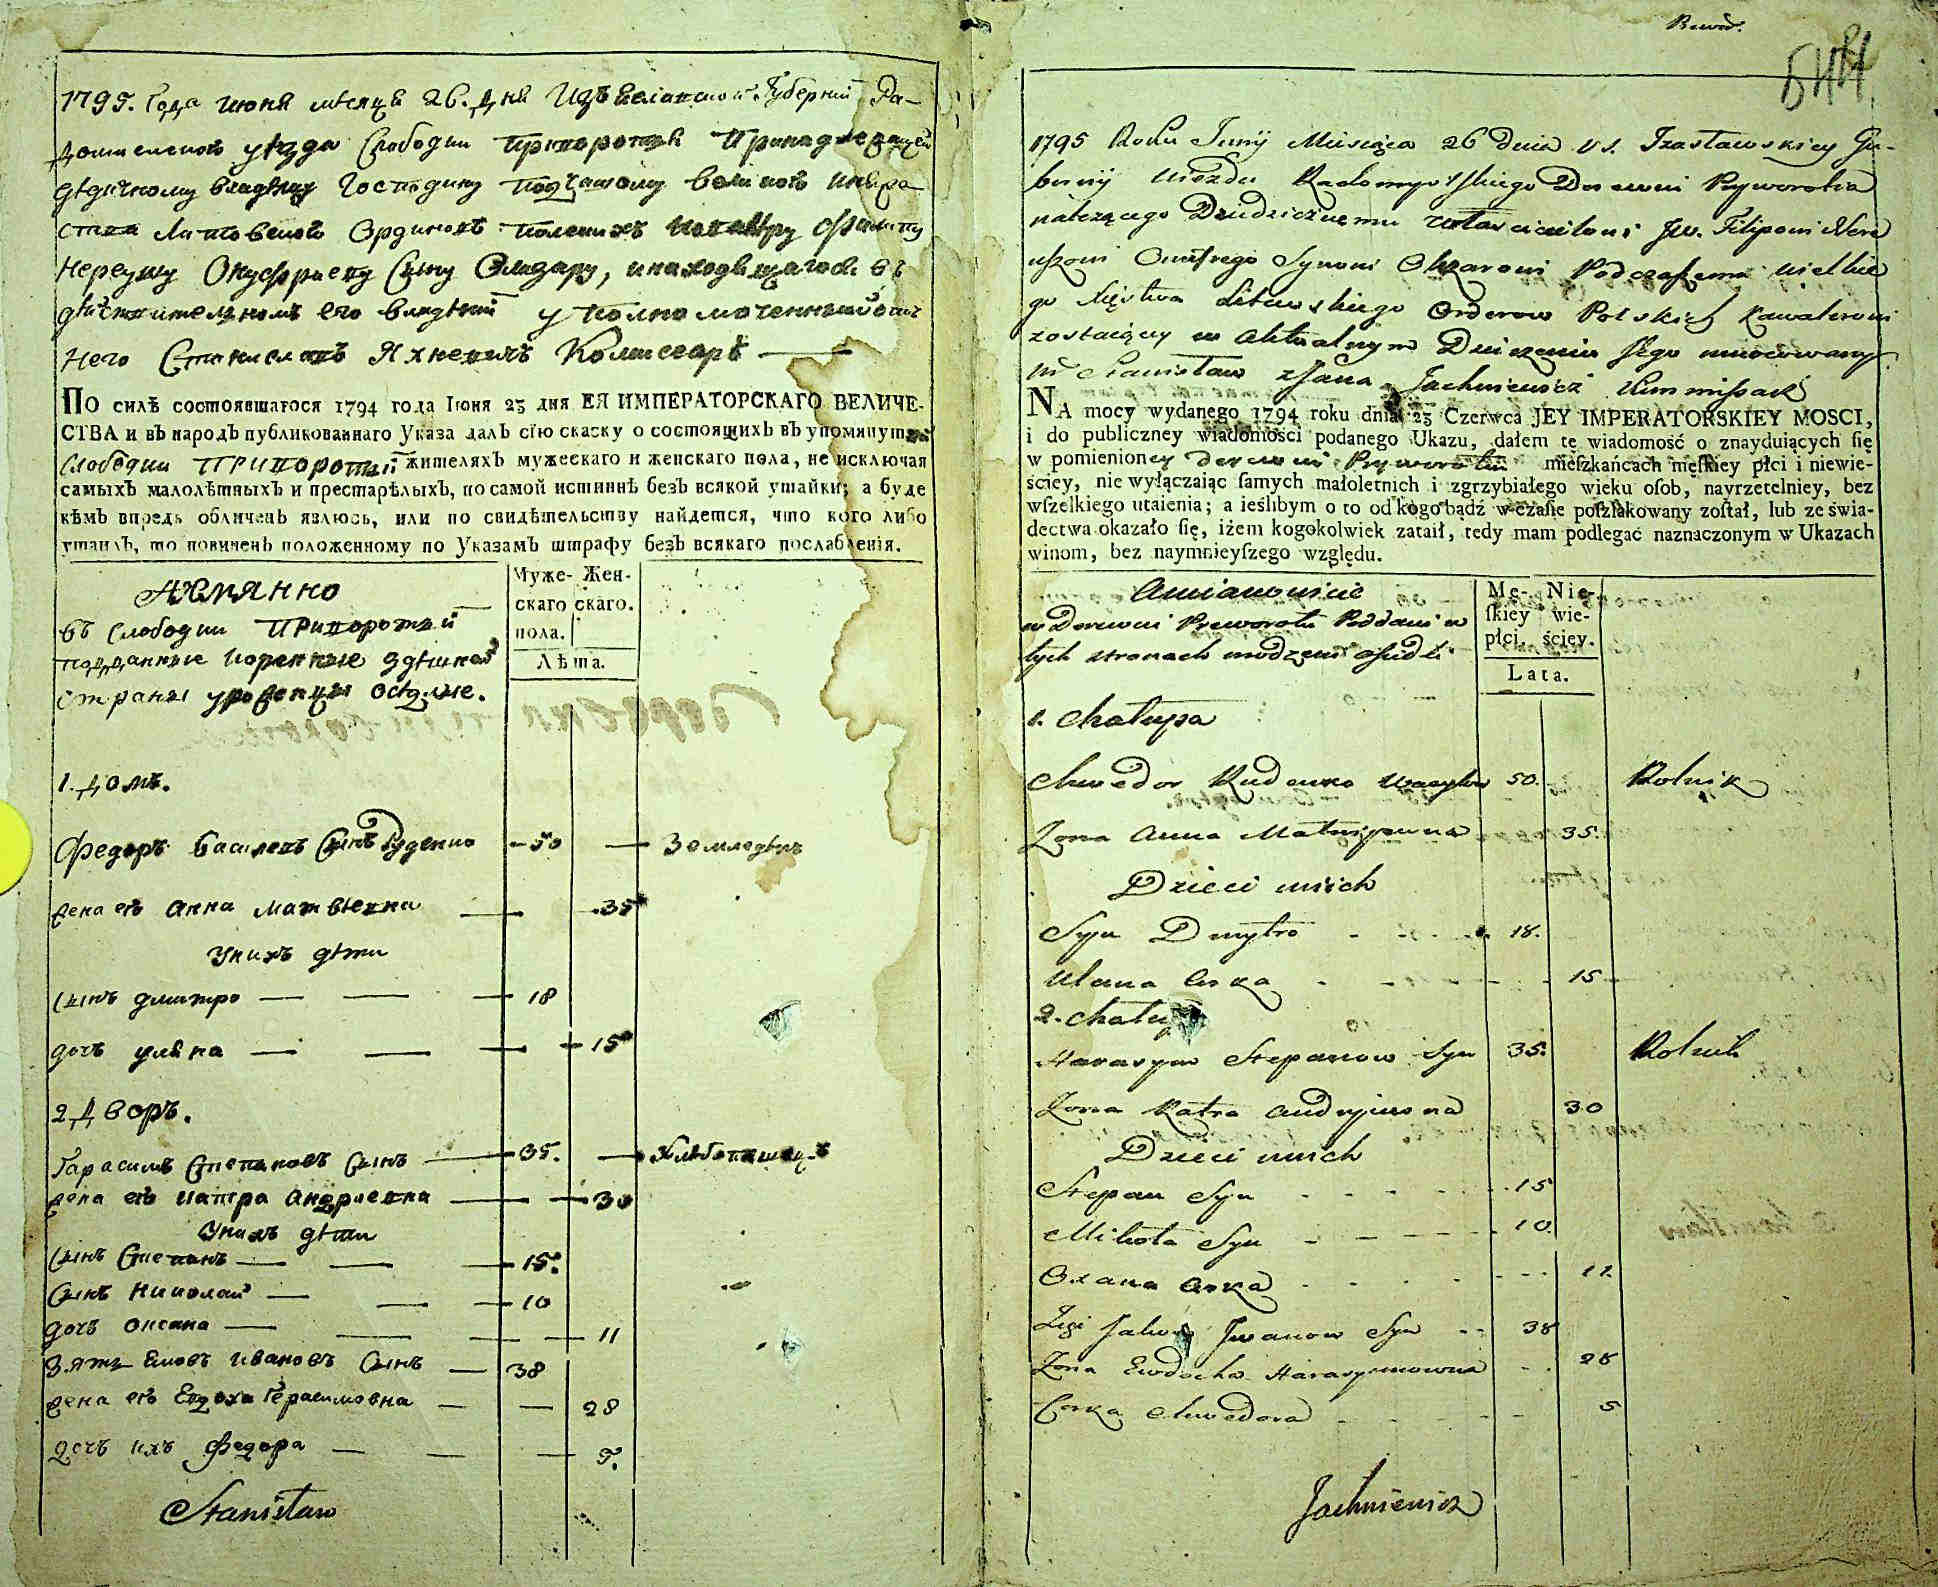 1795. Года июня мѣсяца 26. дня Изъяславской Губернии Ра-
домысльской уѣзда Слободии Приворотья Принадлежащей
дѣдичному владѣлцу Господину подчашому великого княже
ства Литовского Ординовъ полскихъ кавалеру Филипу
Нереушу Онуфриеву Сыну Олизару, инаходящагося въ
дѣйствительномъ его владѣнии уполномоченныйотъ
него Станиславъ Яхневичъ Коммисаръ
ПО силѣ состоявшагося 1794 года Iюня 23 дня ЕЯ ИМПЕРАТОРСКАГО ВЕЛИЧЕ-
СТВА и въ народъ публикованнаго Указа далъ сiю сказку о состоящихъ въ упомянутой
Слободии Приворотьи жителяхъ мужескаго и женскаго пола, не исключая
самыхъ малолѣтныхъ и престарѣлыхъ, по самой истиннѣ безъ всякой утайки; а буде
кѣмъ впредь обличенъ явлюсь, или по свидѣтельству найдется, что кого либо
утаилъ, то повиненъ положенному по Указамъ штрафу безъ всякаго послабленiя.
Муже-скаго пола. Жен-скаго.
Лѣта.
Аимянно
въ Слободии Приворотьи
подданные коренные здѣшней
страны уроженцы осѣдлые.
1. домъ.
Федоръ Василевъ Сынъ Руденко 50 Земледѣлъ
жена его Анна Матвѣевна 35
Унихъ дѣти
Сынъ дмитро 18
дочъ уляна 15
2 дворъ.
Гарасимъ Степановъ Сынъ 35. Хлѣбопашецъ
жена его катра Андриевна 30
Унихъ дѣти
Сынъ Степанъ 15.
Сынъ Николай 10
дочъ оксана 11
Зять Яковъ Ивановъ Сынъ 38
жена его Евдоха Герасимовна 28
дочъ ихъ федора 5.
Stanisław
БИН
1795 Roku Junij Miesiąca 26 Dnia v.s. Izasławskiey Gu-
bernij Uiezdu Radomyslskiego Derewni Prywrotia
należącego Dziedzicznemu właścicielowi Jw. Filipowi Nere
uszowi Onufrego Synowi Olizarowi Podczaszemu wielkie
go Xięstwa Litewskiego Orderow Polskich Kawalerowi
zostaiącey w Aktualnym Dzierżeniu Jego umocowany
Stanisław z Jana Jachniewicz Kommissarz
NA mocy wydanego 1794 roku dnia 23 Czerwca JEY IMPERATORSKIEY MOSCI,
i do publiczney wiadomości podanego Ukazu, dałem tę wiadomość o znayduiących ſię
w pomienioney derewni Prywrotiu mieſzkańcach męſkiey płci i niewie-
ściey, nie wyłączaiąc ſamych małoletnich i zgrzybiałego wieku oſob, nayrzetelniey, bez
wſzelkiego utaienia; a ieślibym o to od kogo bądź w czaſie poſzlakowany zoſtał, lub ze świa-
dectwa okazało ſię, iżem kogokolwiek zataił, tedy mam podlegać naznaczonym w Ukazach
winom, bez naymnieyſzego względu.
Mę-ſkiey płci. Nie-wie-ściey.
Lata.
Amianowicie
w Derewni Preworotu Poddani w
tych stronach urodzeni osiedli
1. Chałupa
Chwedor Rudenko Wasylow 50. Rolnik
Zona Anna Matwijowna 35.
Dzieci unich
Syn Dmytro 18.
Ulana Corka 15
2. Chałupa
Harasym Stepanow Syn 35. Rolnik
Zona Katra Andryiowna 30
Dzieci unich
Stepan Syn 15
Mikoła Syn 10.
Oxana Corka 11.
Zięć Jakow Jwanow Syn 38
Zona Ewdocha Harasymowna 28
Corka Chwedora 5
Jachniewicz